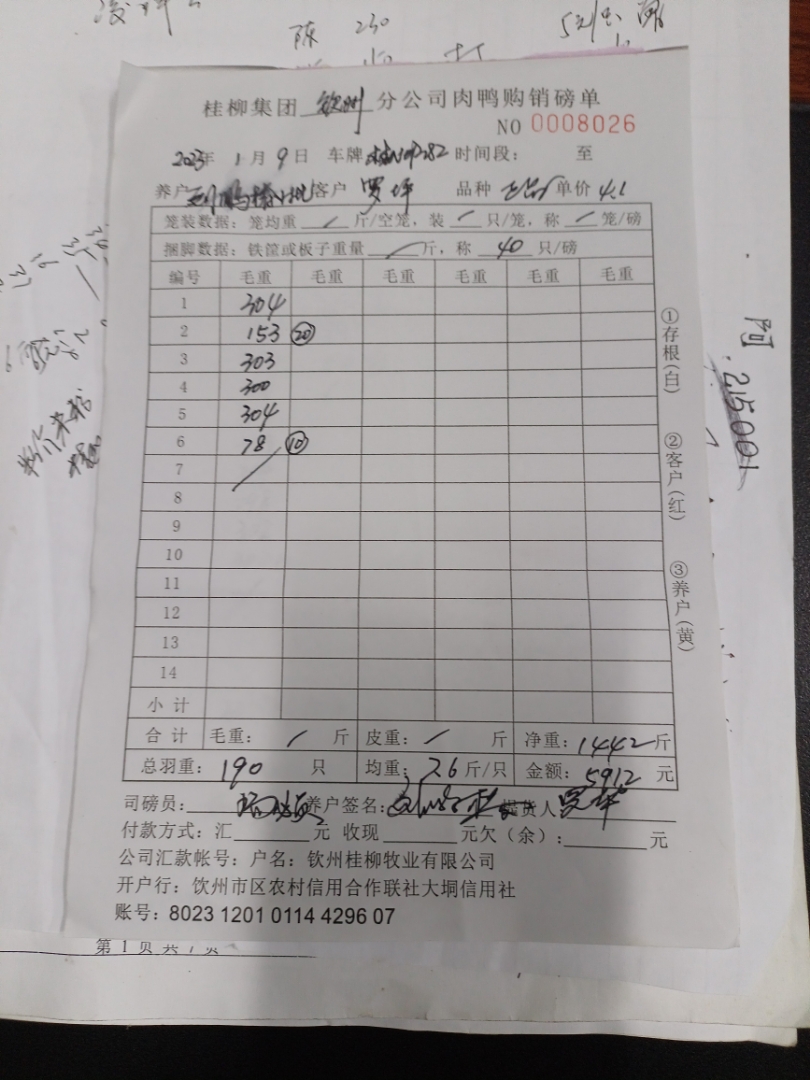 陈 230
桂柳集团 钦州 分公司肉鸭购销磅单
NO 0008026
2023年 1月9日 车牌 时间段: 至
养户 客户 罗坪 品种 单价 4.1
笼装数据: 笼均重 / 斤/空笼, 装 / 只/笼, 称 / 笼/磅
捆脚数据: 铁筐或板子重量 / 斤, 称 40 只/磅
编号 毛重 毛重 毛重 毛重 毛重 毛重
1 304
2 153 ⑳
3 303
4 300
5 304
6 78 ⑩
7
8
9
10
11
12
13
14
小计
合计 毛重: / 斤 皮重: / 斤 净重: 1442斤
总羽重: 190 只 均重: 7.6斤/只 金额: 5912 元
司磅员: 养户签名: 提货人 罗坪
付款方式: 汇 元 收现 元欠(余): 元
公司汇款帐号: 户名: 钦州桂柳牧业有限公司
开户行: 钦州市区农村信用合作联社大垌信用社
账号: 8023 1201 0114 4296 07
①存根(白)
②客户(红)
③养户(黄)
215001
第 1 页 共 1 页